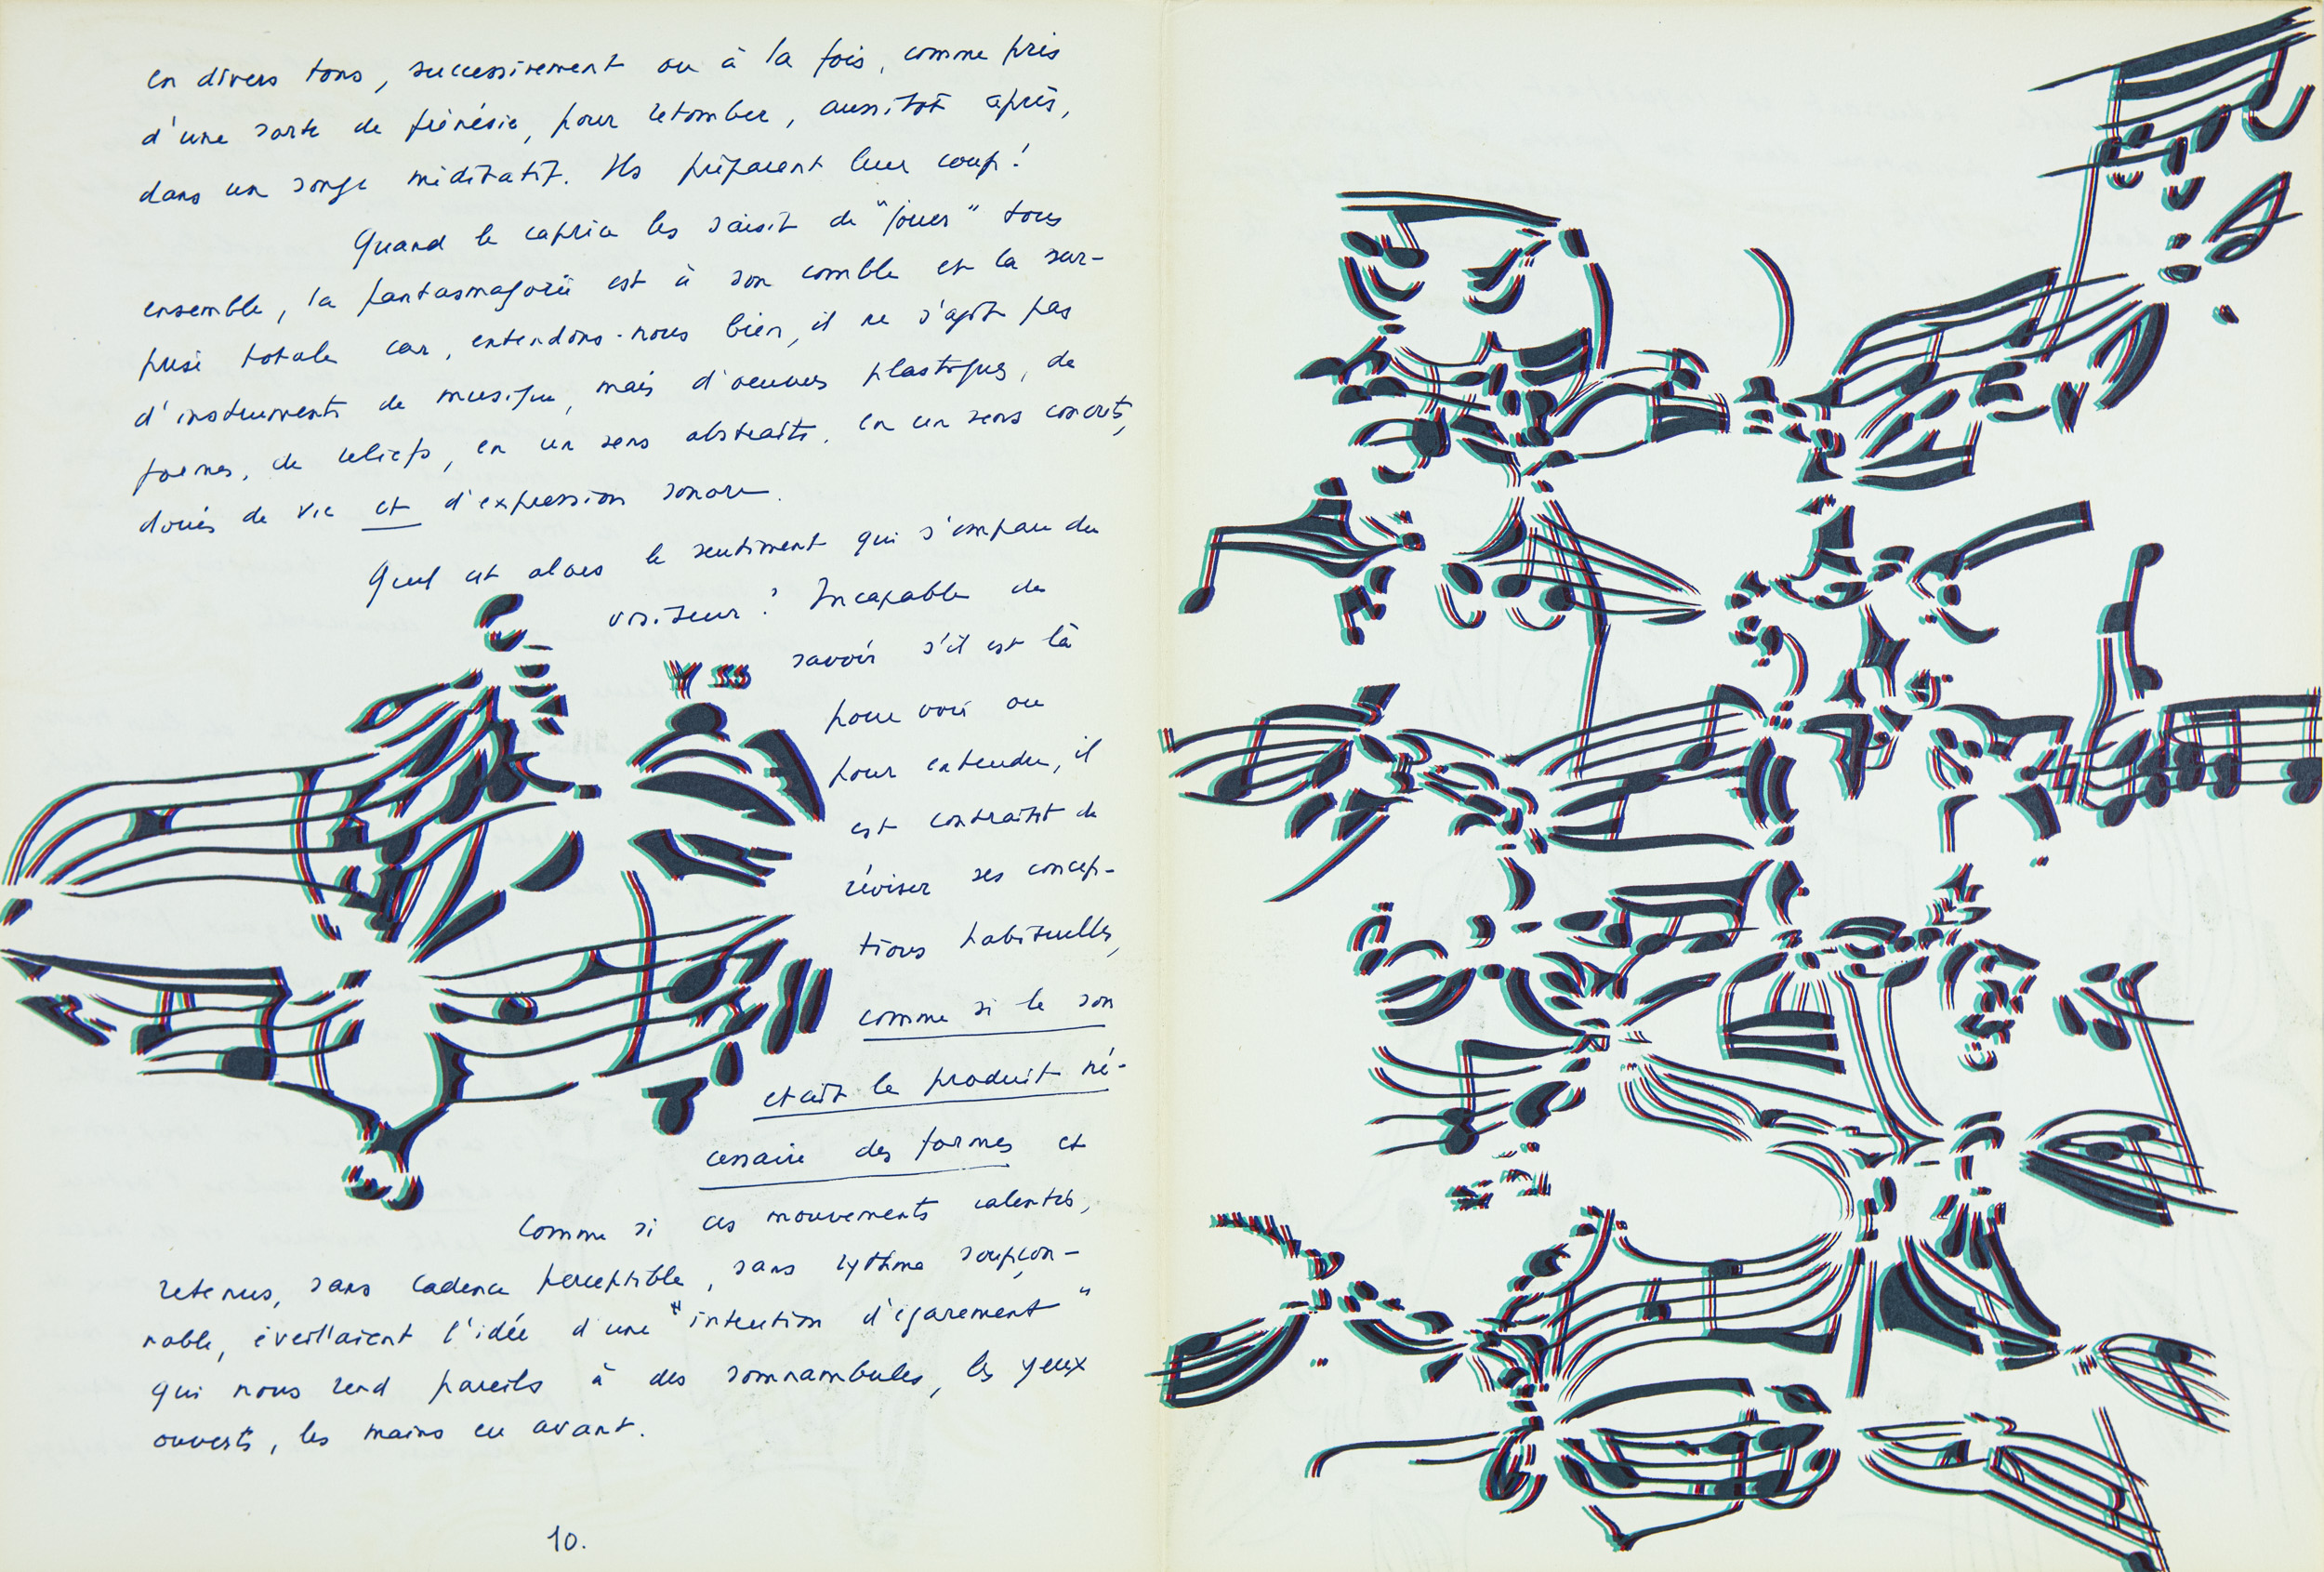 en divers tons, successivement ou à la fois, comme pris
d'une sorte de frénésie, pour retomber, aussitôt après,
dans un songe méditatif. Ils préparent leur coup!
Quand le caprice les saisit de "jouer" tous
ensemble, la fantasmagorie est à son comble et la sur-
prise totale car, entendons-nous bien, il ne s'agit pas
d'instruments de musique, mais d'oeuvres plastiques, de
formes, de reliefs, en un sens abstraits, en un sens concrets,
doués de vie et d'expression sonore.
Quel est alors le sentiment qui s'empare du
visiteur? Incapable de
savoir s'il est là
pour voir ou
pour entendre, il
est contraint de
réviser ses concep-
tions habituelles,
comme si le son
etait le produit né-
cessaire des formes et
comme si ces mouvements ralentis,
retenus, sans cadence perceptible, sans rythme soupçon-
nable, éveillaient l'idée d'une "intention d'égarement"
qui nous rend pareils à des somnambules, les yeux
ouverts, les mains en avant.
10.